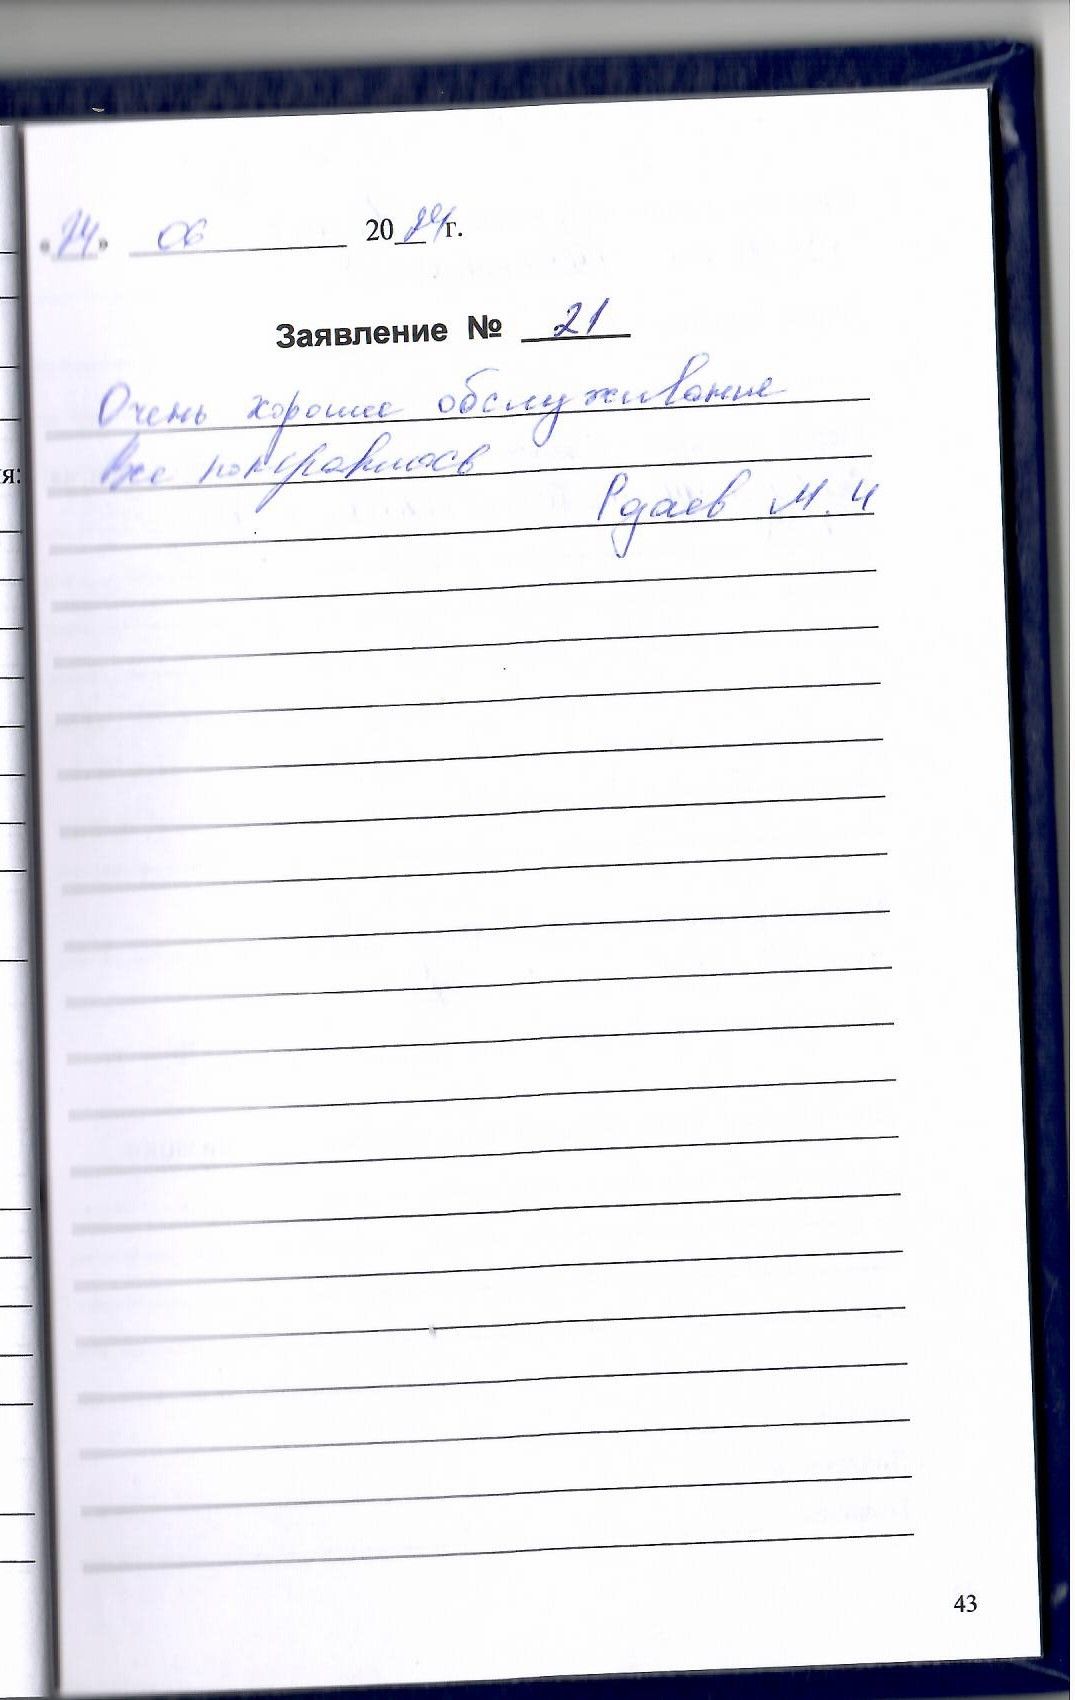 «24» 06 2024 г.
Заявление № 21
Очень хорошее обслуживание
Все понравилось
я:
Рдаев М. И
43